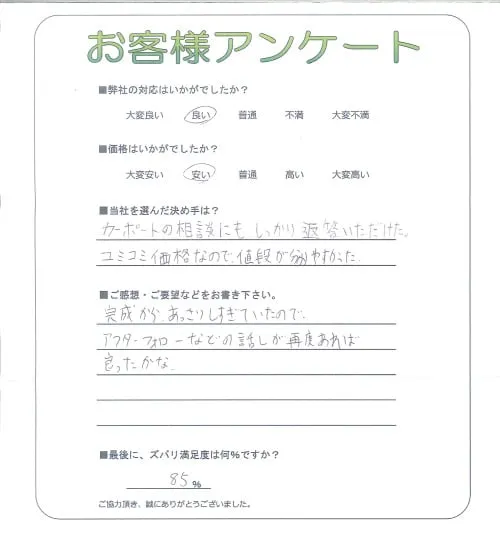 お客様アンケート
■弊社の対応はいかがでしたか？
大変良い 良い 普通 不満 大変不満
■価格はいかがでしたか？
大変安い 安い 普通 高い 大変高い
■当社を選んだ決め手は？
カーポートの相談にもしっかり返答いただけた。
コミコミ価格なので、値段が分りやすかった。
■ご感想・ご要望などをお書き下さい。
完成から、あっさりしすぎていたので、
アフターフォローなどの話しが再度あれば
良ったかな。
■最後に、ズバリ満足度は何％ですか？
85％
ご協力頂き、誠にありがとうございました。